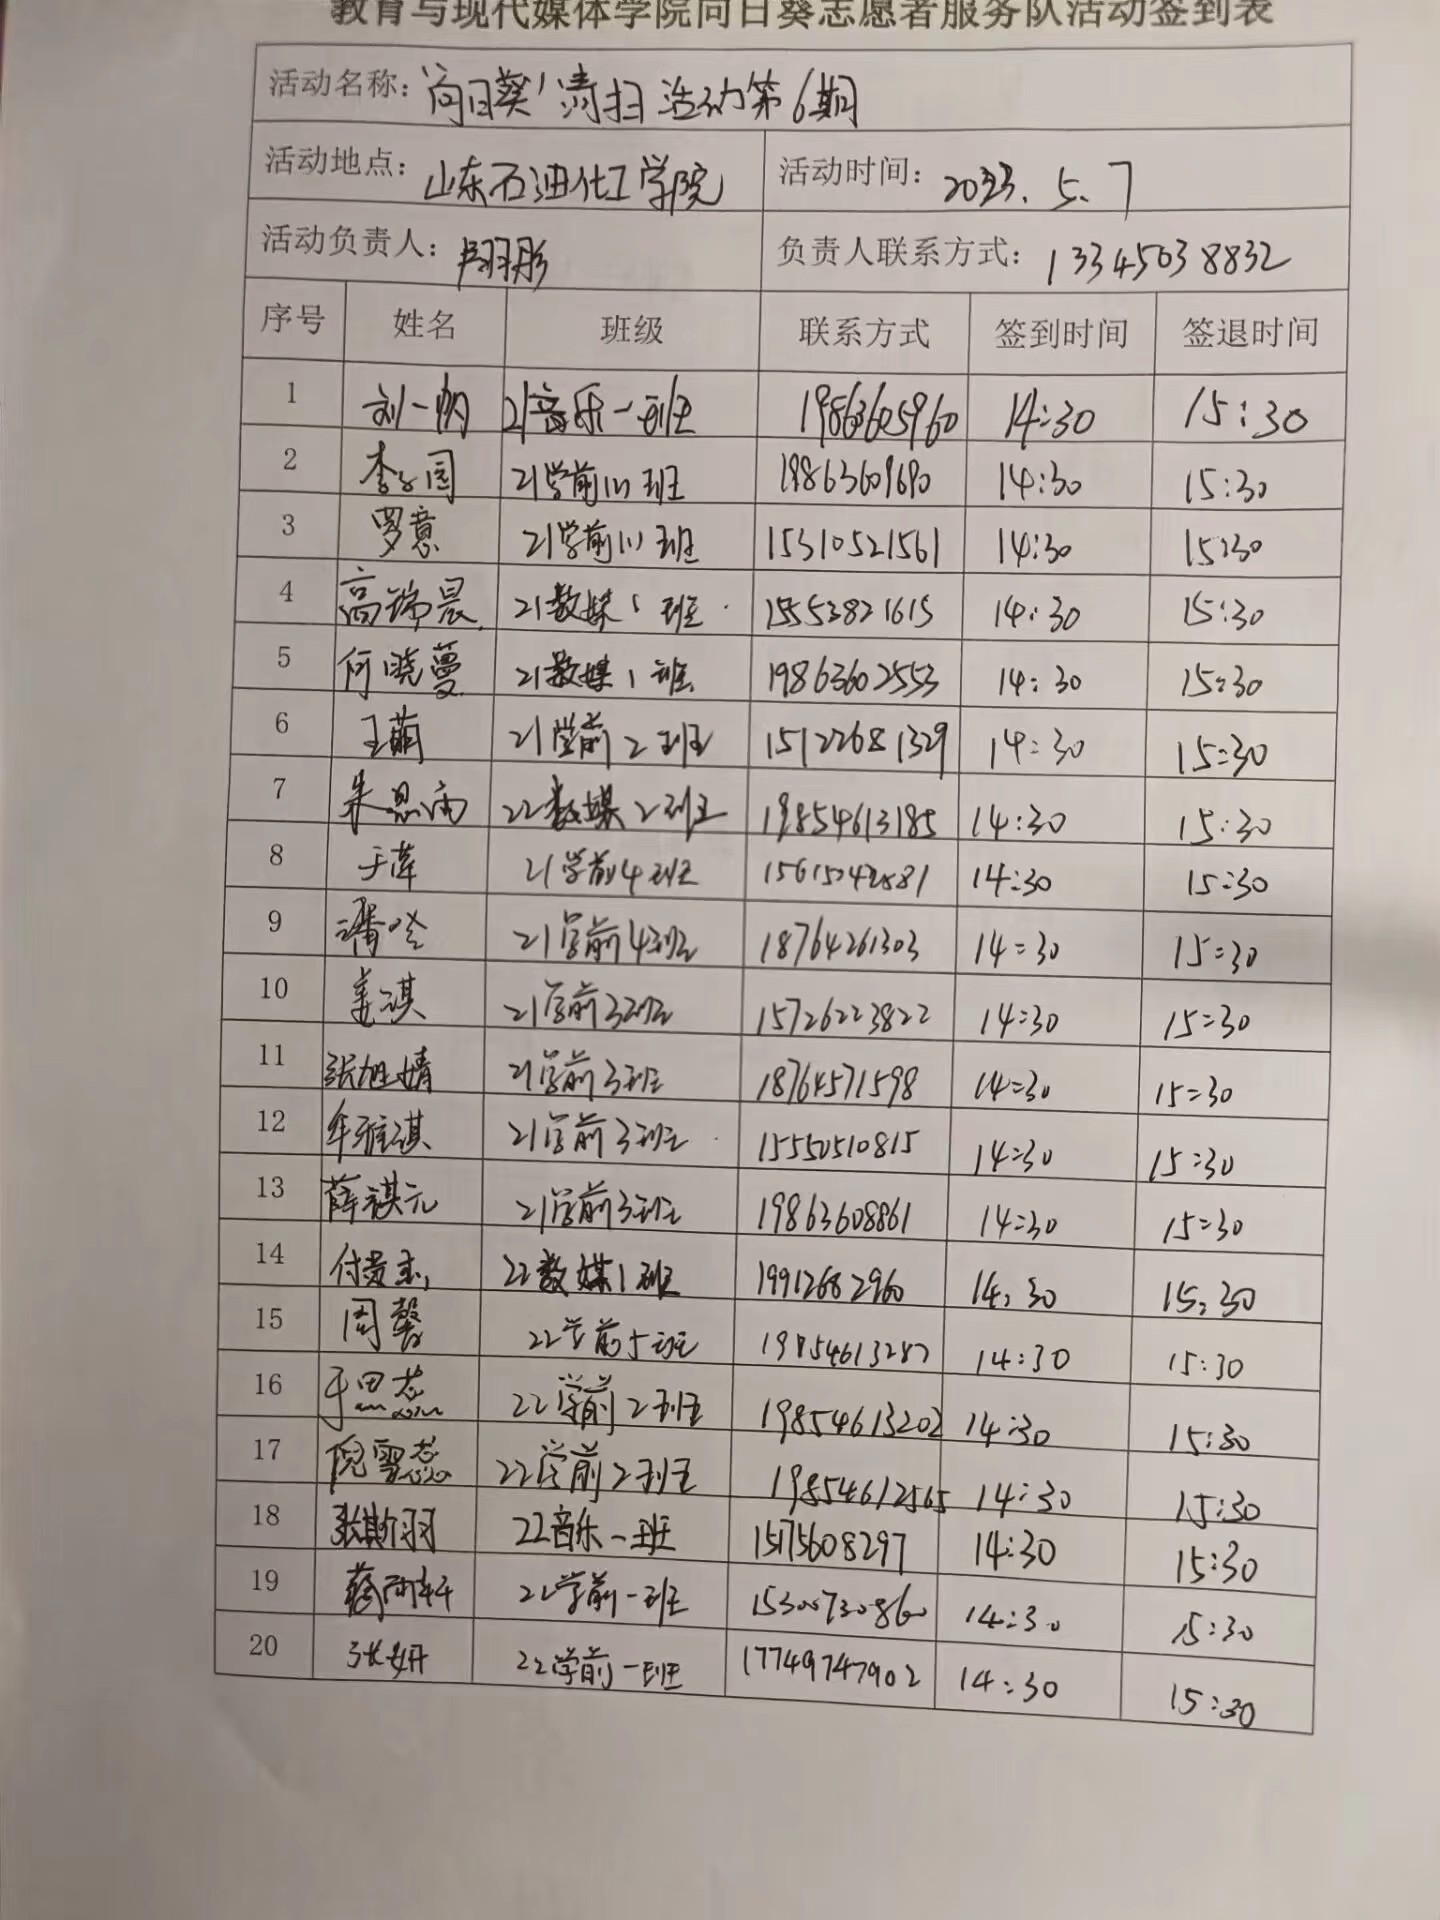 教育与现代媒体学院向日葵志愿者服务队活动签到表
活动名称：向日葵清扫活动第6期
活动地点：山东石油化工学院 活动时间：2023.5.7
活动负责人： 负责人联系方式：13345038832
序号 姓名 班级 联系方式 签到时间 签退时间
1 刘一帆 21音乐一班 19863605960 14:30 15:30
2 李园 21学前(1)班 19863609690 14:30 15:30
3 罗意 21学前(1)班 15310521561 14:30 15:30
4 高瑞晨 21数媒1班 15553821615 14:30 15:30
5 何晓蔓 21数媒1班 19863602553 14:30 15:30
6 王萌 21学前2班 15122681329 14:30 15:30
7 朱思雨 22数媒2班 19854613185 14:30 15:30
8 于萍 21学前4班 14:30 15:30
9 潘 21学前4班 18764261303 14:30 15:30
10 姜祺 21学前3班 15726223822 14:30 15:30
11 张旭婧 21学前3班 18764571598 14:30 15:30
12 牟雅祺 21学前3班 15550510815 14:30 15:30
13 薛祺元 21学前3班 19863608861 14:30 15:30
14 付贵 22数媒1班 19912682960 14:30 15:30
15 周馨 22学前5班 19854613287 14:30 15:30
16 于思蕊 22学前2班 19854613202 14:30 15:30
17 倪雪蕊 22学前2班 19854612565 14:30 15:30
18 张斯羽 22音乐一班 15175608297 14:30 15:30
19 蔡雨轩 22学前一班 15300730860 14:30 15:30
20 张妍 22学前一班 17749747902 14:30 15:30